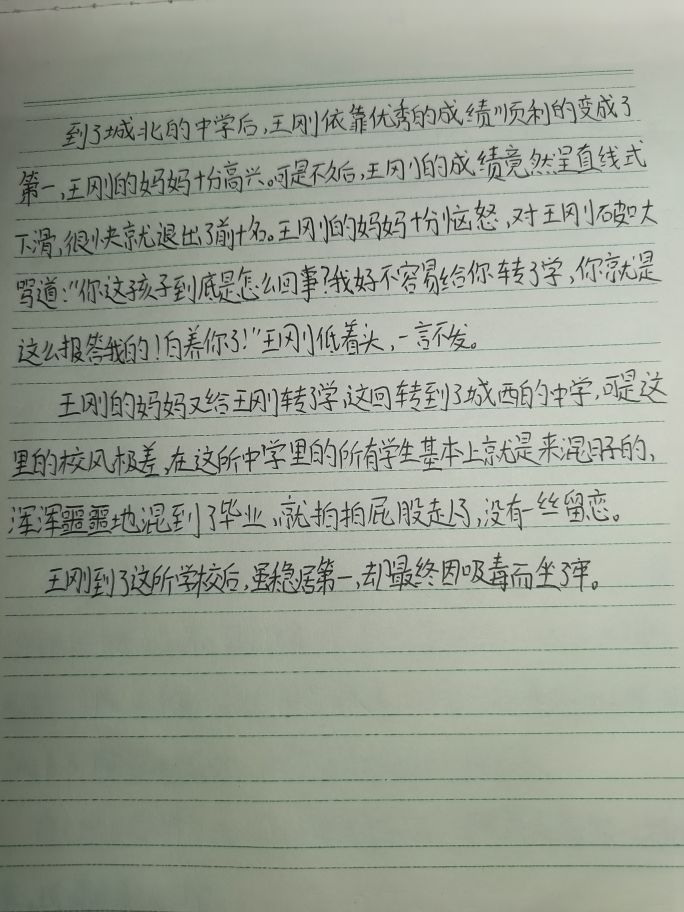 到了城北的中学后,王刚依靠优秀的成绩顺利的变成了
第一,王刚的妈妈十分高兴。可是不久后,王刚的成绩竟然呈直线式
下滑,很快就退出了前十名。王刚的妈妈十分恼怒,对王刚破口大
骂道:“你这孩子到底是怎么回事?我好不容易给你转了学,你就是
这么报答我的!白养你了!”王刚低着头,一言不发。
王刚的妈妈又给王刚转了学,这回转到了城西的中学,可是这
里的校风极差,在这所中学里的所有学生基本上就是来混日子的,
浑浑噩噩地混到了毕业,就拍拍屁股走了,没有一丝留恋。
王刚到了这所学校后,虽稳居第一,却最终因吸毒而坐了牢。